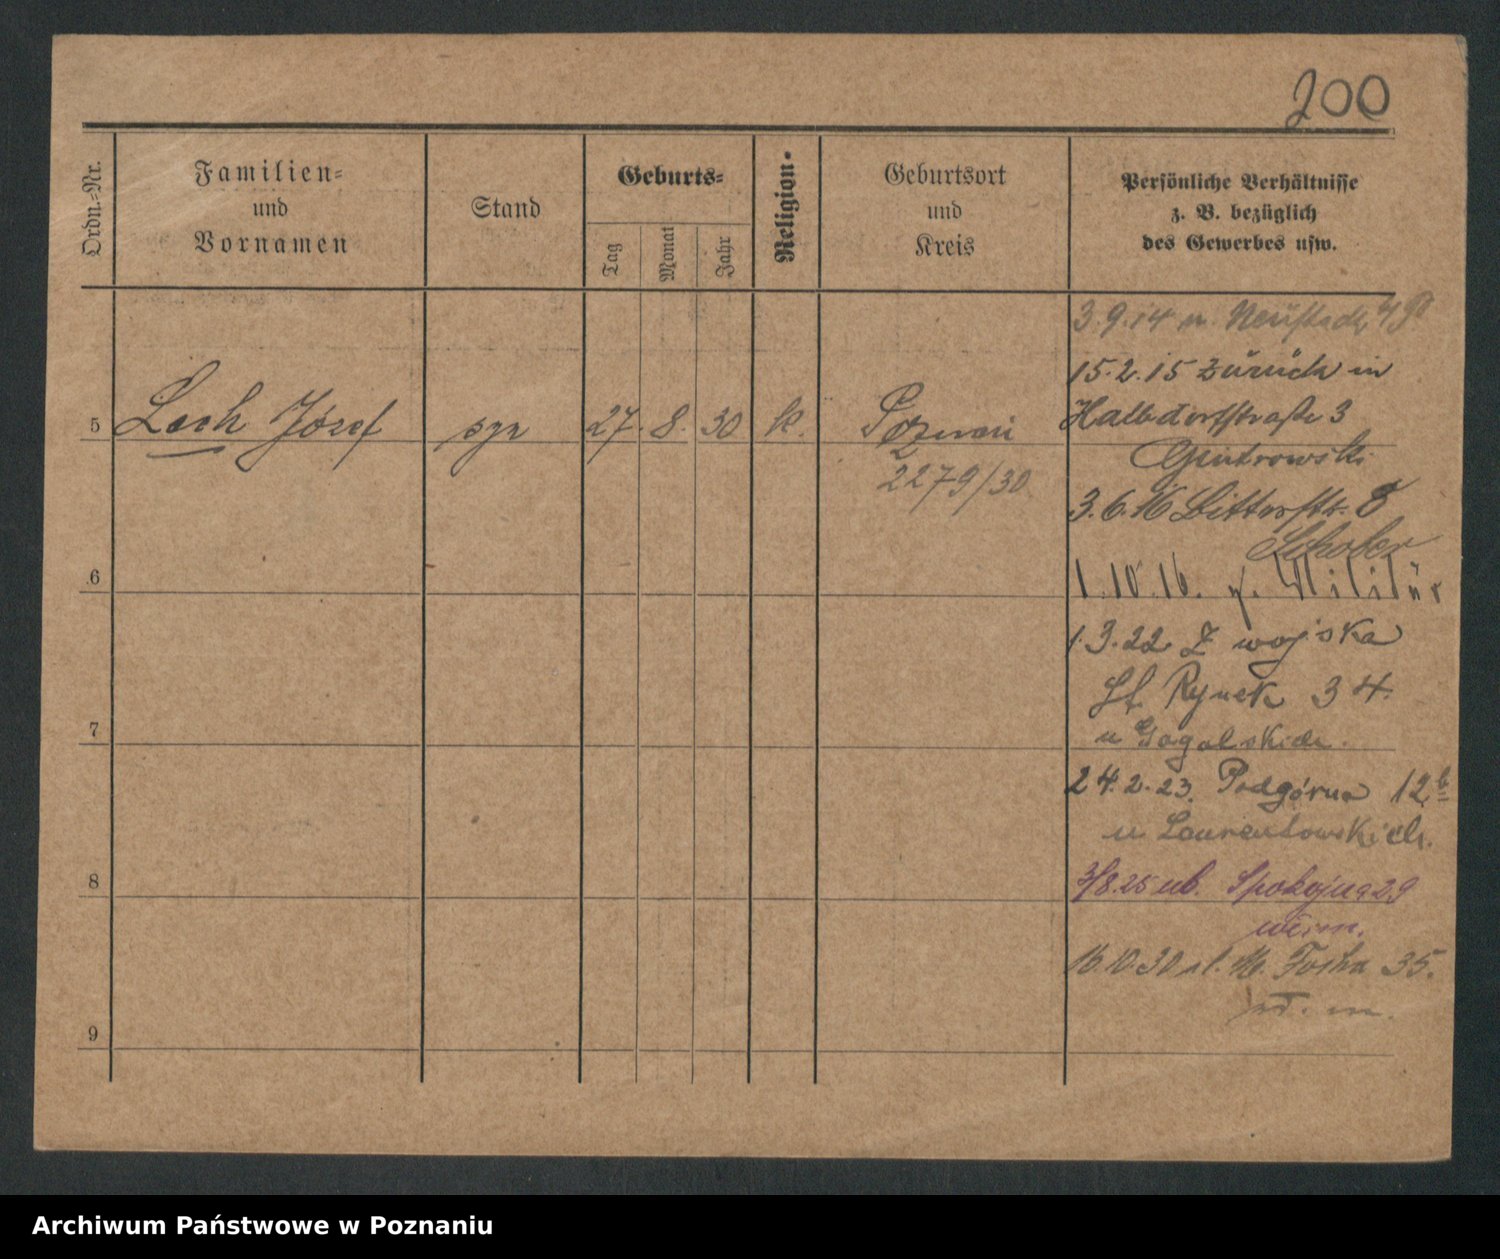 200
Ordn.-Nr.
Familien-
und
Vornamen
Stand
Geburts-
Tag
Monat
Jahr
Religion
Geburtsort
und
Kreis
Persönliche Verhältnisse
z. B. bezüglich
des Gewerbes usw.
3.9.14 n. Neustadt
15.2.15 zurück in
Halbdorfstraße 3
5 Lech Józef syn 27. 8. 30 k. Poznań
2279/30
3.6.16 Ritterstr. 8
Schober
6
1.10.16. z. Militär
1.3.22 Z wojska
St. Rynek 34.
7
u Gogolskich.
24.2.23. Podgórna 12b
u Laurentowskich.
8
3/8.25 ub. Spokojna 29
16.10.30 ul. M. Focha 35.
9
Archiwum Państwowe w Poznaniu